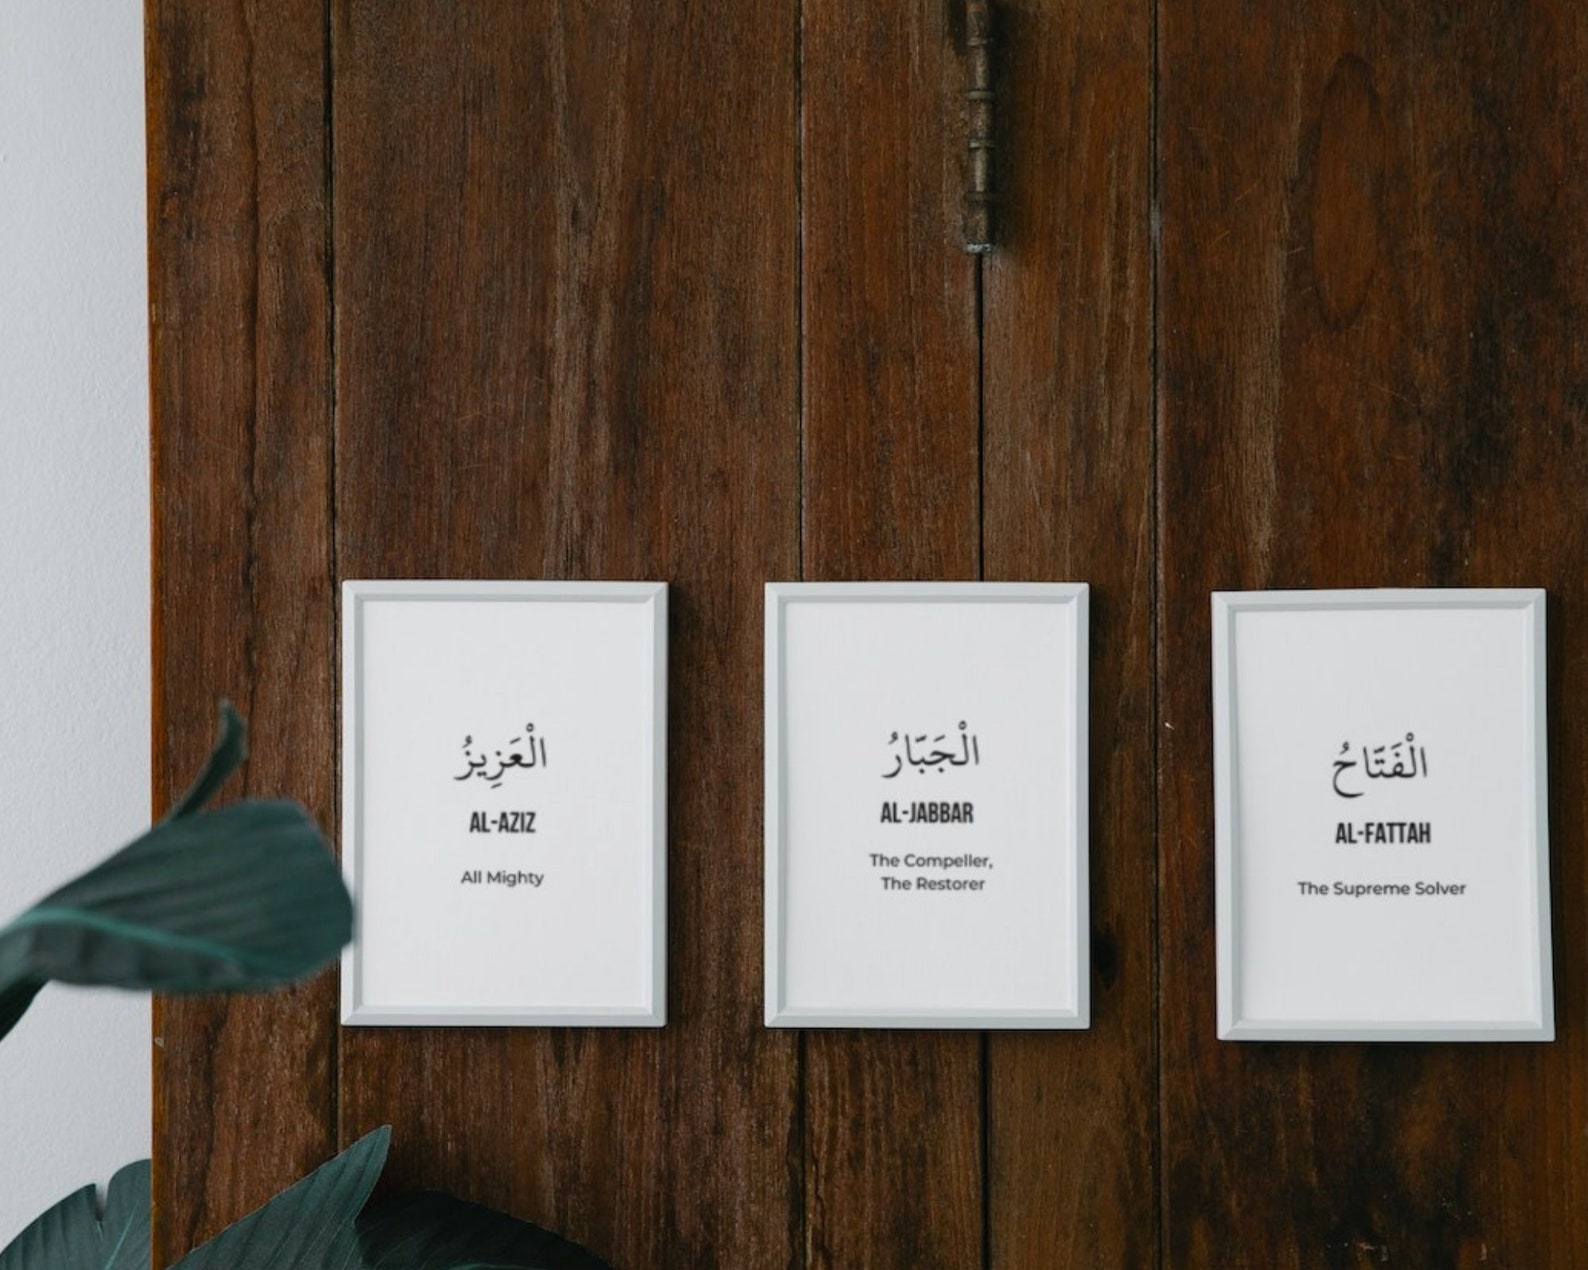 الْعَزِيزُ
AL-AZIZ
All Mighty
الْجَبّارُ
AL-JABBAR
The Compeller,
The Restorer
الْفَتّاحُ
AL-FATTAH
The Supreme Solver